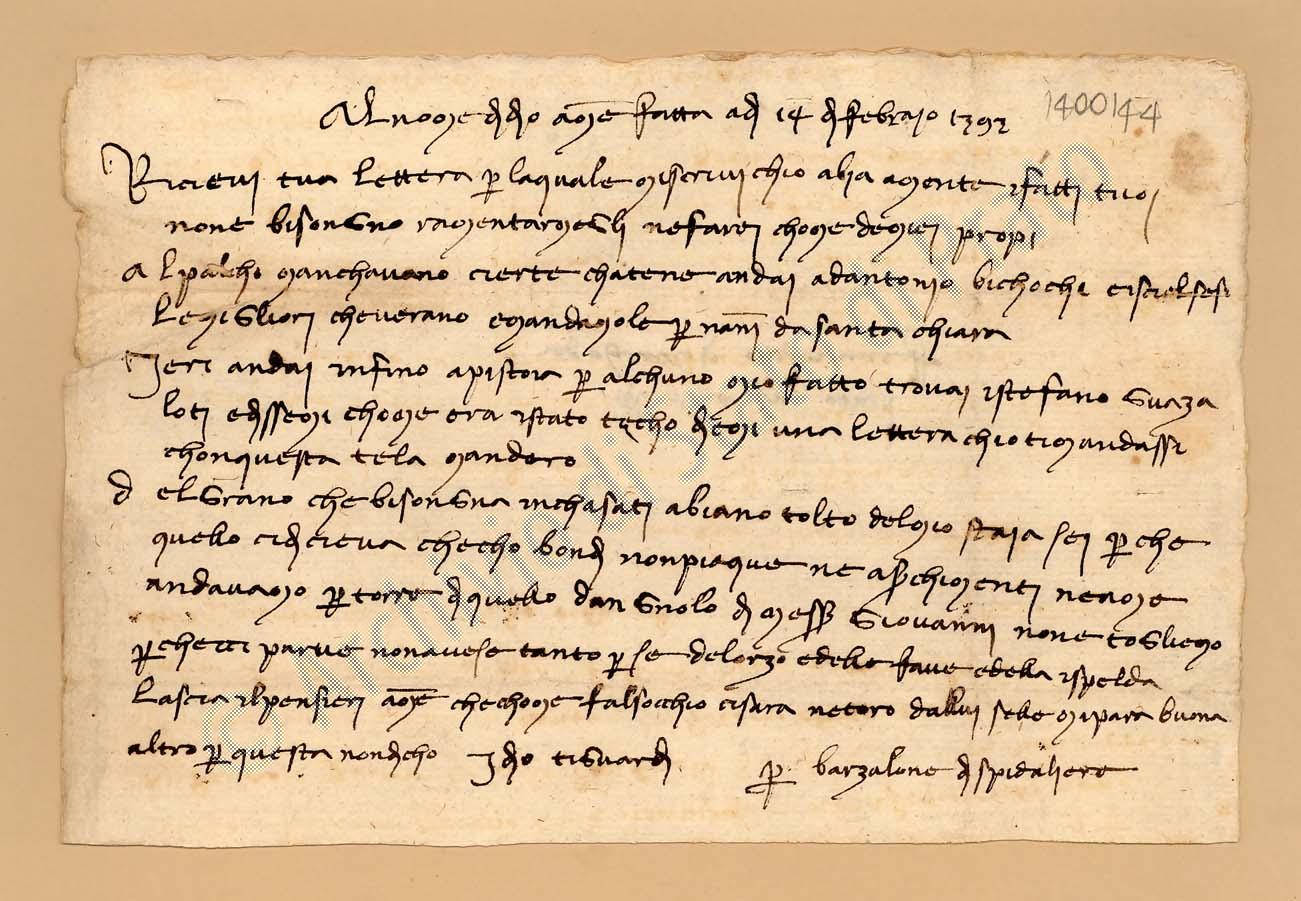 Al nome di dio ame fatta adi 14 di febraio 1392
1400144
Ricievi tua lettera p laquale miscrivi chio abia amente ifatti tuoi
none bisongno ramentarmegli nefarei chome demiei propi
al palcho manchavano cierte chatene andai adantonio bichochi e iscielsesi
lemigliori cheverano emandamole p nanni da santa chiara
Ieri andai infino apistoia p alchuno mio fatto trovai istefano guaza
loti edissemi chome era istato techo diemi una lettera chiotimandassi
chonquesta tela mandero
del grano che bisongna inchasati abiano tolto delmio staia sei p che
quello cidicieva checho bondi nonpiaque ne a schimenti neame
andavamo p torre diquello dangnolo di mess giovanni none togliemo
p che parve nonavese tanto p se delorzo edelle fave edella ispelda
lascia ilpensieri ame chechome falsocchio cisara netoro dallui selle mipara buona
altro p questa nondicho Idio tiguardi
p barzalone dispidaliere